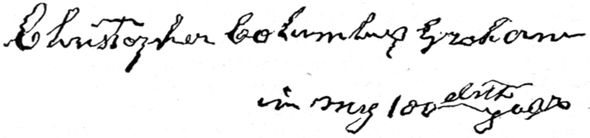 Christopher Columbus Graham
in my 100 year